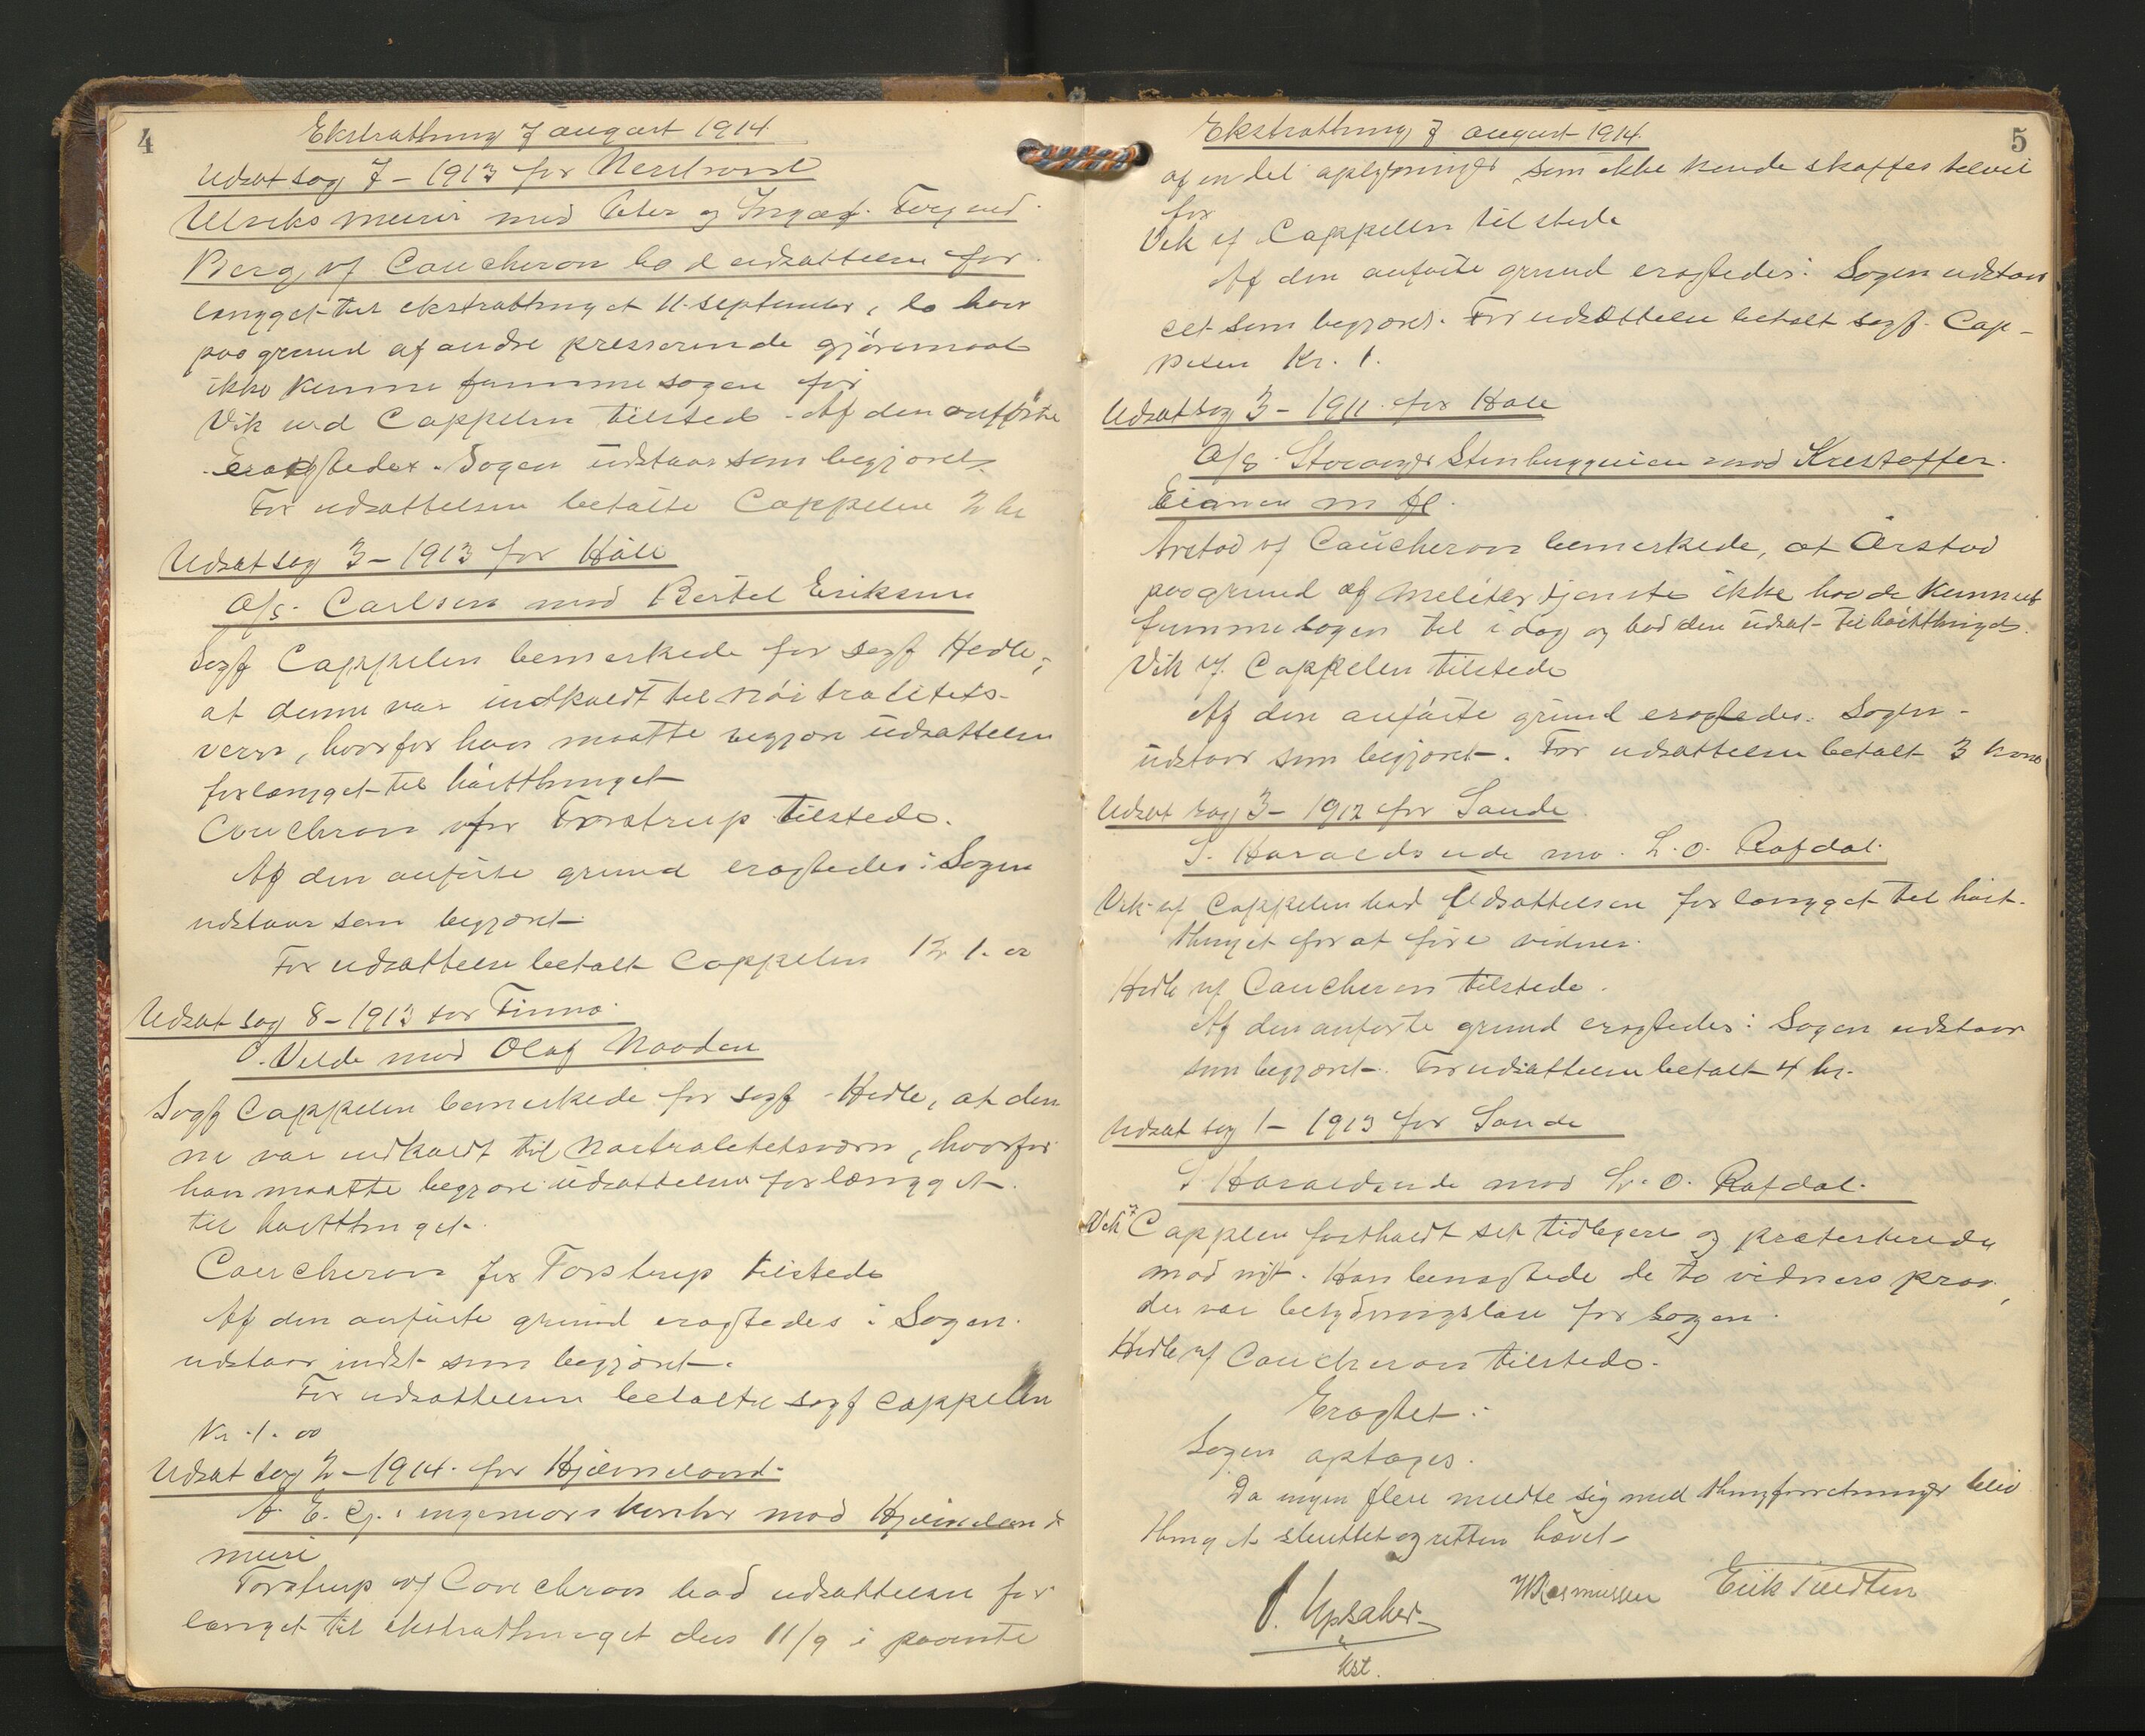 4
Ekstrathing 7 august 1914
Udsat sag 7 - 1913 for Nerstrand
Ulriks mein mod Peter og Ingeb. Forgend
Berg vf Coucheron bad udsættelsen for
længget til ekstrathinget 11 september, da han
paa grund af andre presserende gjøremaal
ikke kunne fremme sagen før
Vik ved Cappelen tilstede. Af den anførte
Eragtedes. Sagen udstaar som begjæret.
For udsættelsen betalte Cappelen 2 kr
Udsat sag 3 - 1913 for Håle
A/s. Carlsen mod Bertel Eriksen
Sagf Cappelen bemerkede for sagf Hedle,
at denne var indkaldt til nøitralitets-
vern, hvorfor han maatte begjøre udsættelsen
forlænget til høstthinget
Coucheron for Torstrup tilstede.
Af den anførte grund eragtedes: Sagen
udstaar som begjæret
For udsættelsen betalt Cappelen Kr 1. 00
Udsat sag 8 - 1913 for Finnø
O. Velde mod Olaf Naaden
Sagf Cappelen bemerkede for sagf Hedle, at den
ne var indkaldt til nøitralitetsværn, hvorfor
han maatte begjære udsættelsen forlængget
til høstthinget.
Coucheron for Torstrup tilstede
Af den anførte grund eragtedes: Sagen
udstaar indst som begjæret.
For udsættelsen betalte sagf Cappelen
Kr. 1. 00
Udsat sag 2 - 1914. for Hjelmeland
A. E. G. ingeniørs kontor mod Hjelmeland
meieri
Torstrup vf Coucheron bad udsættelsen for
længet til ekstrathinget den 11/9 i paavente
5
Ekstrathing 7 august 1914.
af en del oplysninger som ikke kunde skaffes tilveie
før
Vik vf Cappelen tilstede
Af den anførte grund eragtedes: Sagen udstaar
alt som begjæret. For udsættelsen betalt sagf. Cap-
pelen Kr. 1.
Udsat sag 3 - 1911 for Håle
A/s. Stavanger Stenhuggerien mod Kristoffer
Eianen m fl.
Årstad vf Coucheron bemerkede, at Årstad
paagrund af militærtjeneste ikke havde kunnet
fremme sagen til i dag og bad den udsat til høstthinget.
Vik vf. Cappelen tilstede
Af den anførte grund eragtedes: Sagen
udstaar som begjæret. For udsættelsen betalt 3 kroner
Udsat sag 3 - 1912 for Sande
S. Haraldseide mo. L. O. Rafdal.
Vik vf Cappelen bad udsættelsen forlængget til høst-
thinget for at føre vidner.
Hedle vf Coucheron tilstede.
Af den anførte grund eragtedes: Sagen udstaar
som begjæret. For udsættelsen betalt 4 kr.
Udsat sag 1 - 1913 for Sande
S. Haraldseide mod L. O. Rafdal.
Vik vf Cappelen fastholdt sit tidligere og protesterede
mod nyt. Han benegtede de to vidners prov,
der var betydningsløse for sagen.
Hedle vf Coucheron tilstede.
Eragtet:
Sagen optages.
Da ingen flere meldte sig med thingforretninger blev
thinget sluttet og retten hævet.
O. Upsaker
kst.
W Rasmussen
Erik Tuedten